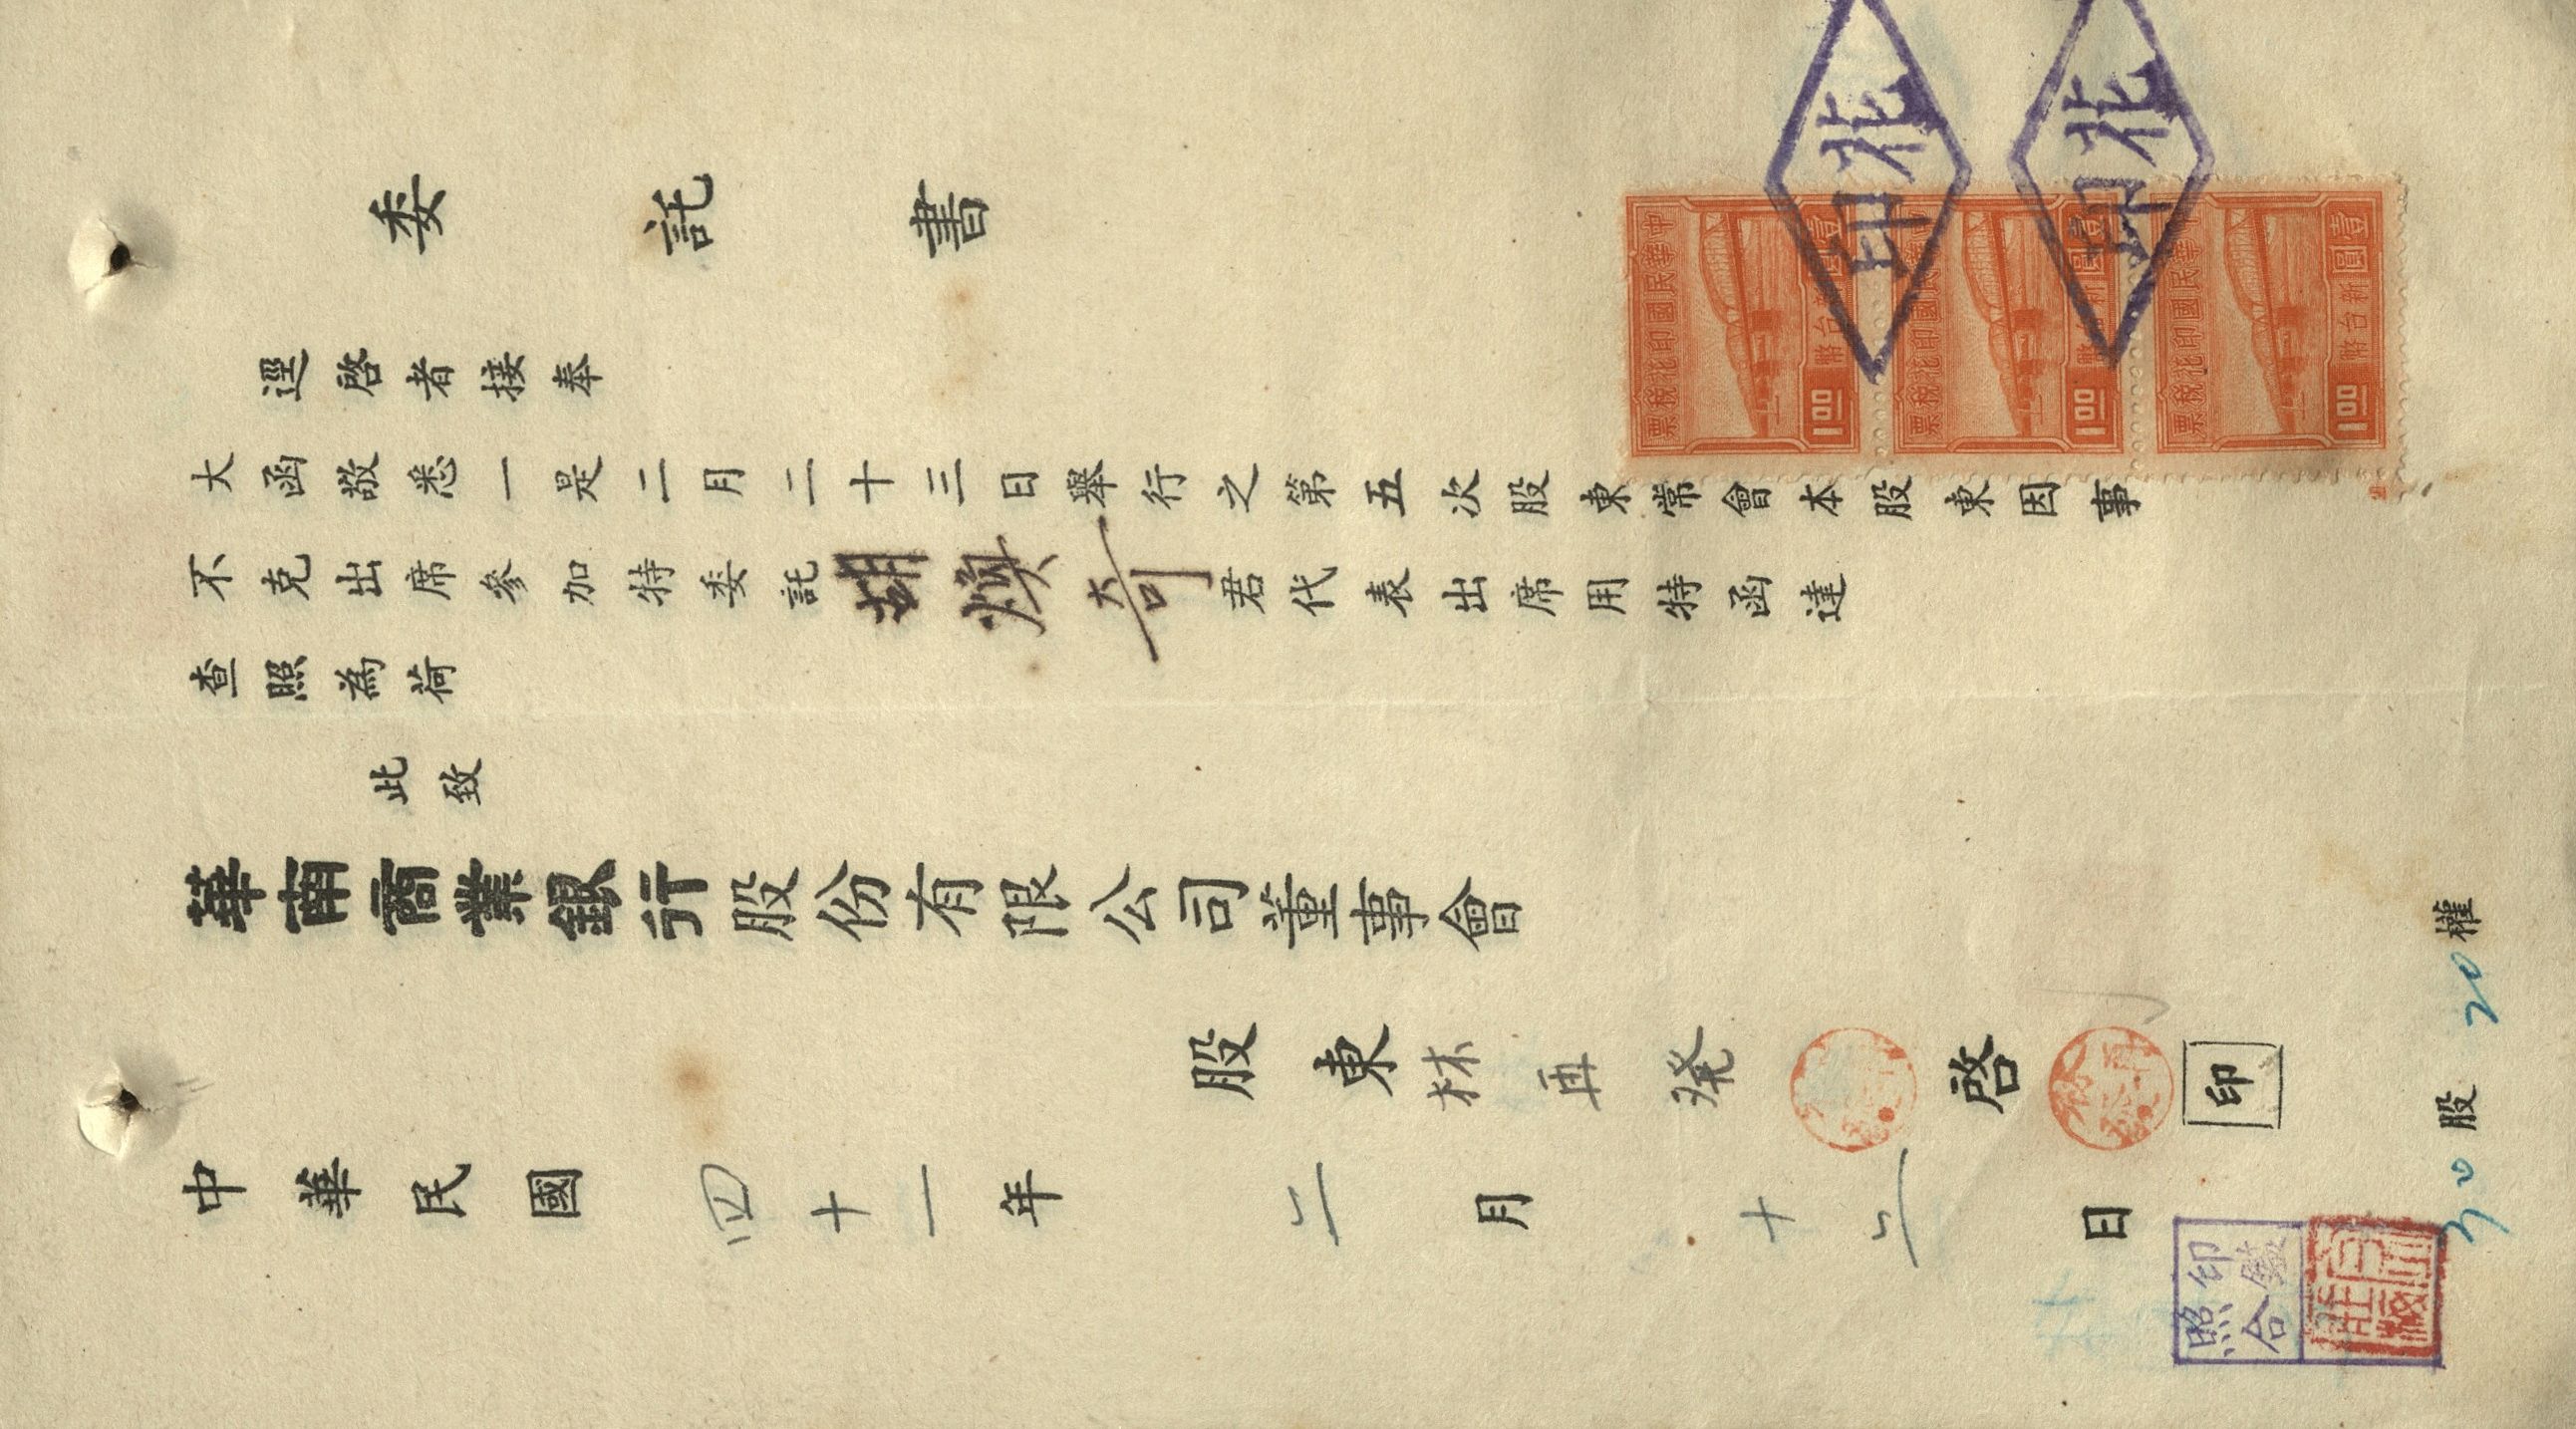 委託書
逕啓者接奉
大函敬悉一是二月二十三日舉行之第五次股東常會本股東因事
不克出席參加特委託胡煥奇君代表出席用特函達
查照為荷
此致
華南商業銀行股份有限公司董事會
股東林再發啓印
中華民國四十一年二月十二日
30股20權
印花
印花
中華民國印花稅票
壹圓新台幣
1.00
中華民國印花稅票
壹圓新台幣
1.00
中華民國印花稅票
壹圓新台幣
1.00
印鑑
照合